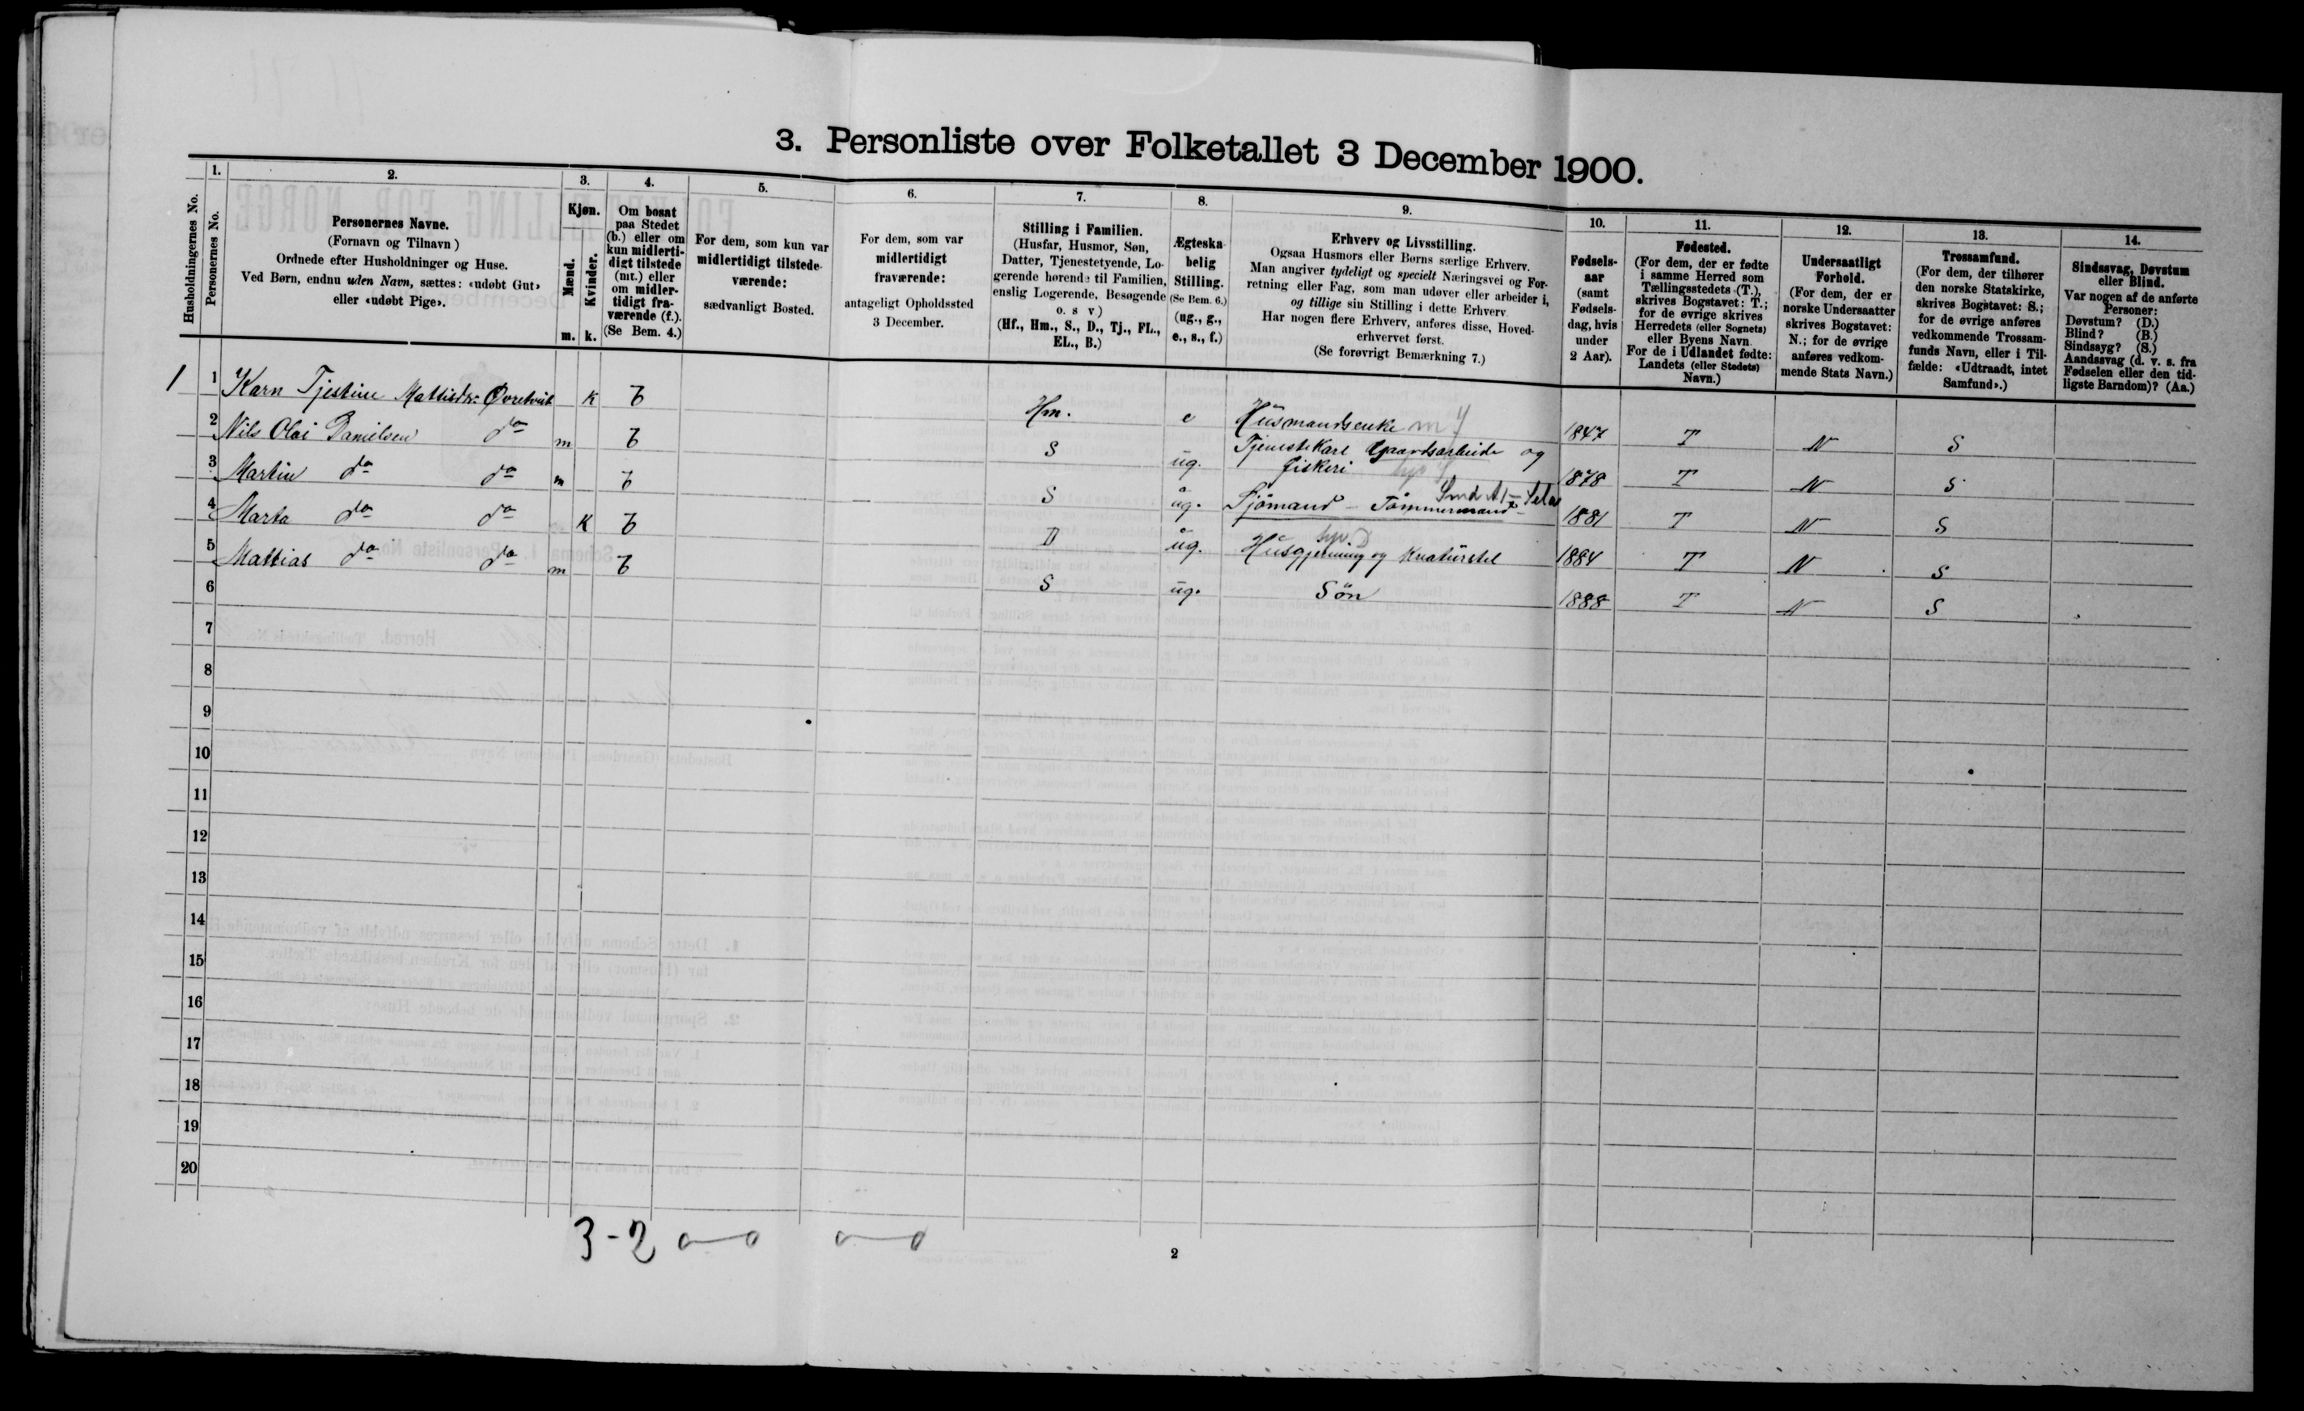 3. Personliste over Folketallet 3 December 1900.
Husholdningernes No.
1.
Personernes No.
2.
Personernes Navne.
(Fornavn og Tilnavn)
Ordnede efter Husholdninger og Huse.
Ved Børn, endnu uden Navn, sættes: «udøbt Gut»
eller «udøbt Pige».
3.
Kjøn.
Mænd.
Kvinder.
m. k.
4.
Om bosat
paa Stedet
(b.) eller om
kun midlerti-
digt tilstede
(mt.) eller
om midler-
tidigt fra-
værende (f.).
(Se Bem. 4.)
5.
For dem, som kun var
midlertidigt tilstede-
værende:
sædvanligt Bosted.
6.
For dem, som var
midlertidigt
fraværende:
antageligt Opholdssted
3 December.
7.
Stilling i Familien.
(Husfar, Husmor, Søn,
Datter, Tjenestetyende, Lo-
gerende hørende til Familien,
enslig Logerende, Besøgende
o. s v)
(Hf., Hm., S., D., Tj., FL.,
EL., B.)
8.
Ægteska-
belig
Stilling.
(Se Bem. 6.)
(ug., g.,
e., s., f.)
9.
Erhverv og Livsstilling.
Ogsaa Husmors eller Børns særlige Erhverv.
Man angiver tydeligt og specielt Næringsvei og For-
retning eller Fag, som man udøver eller arbeider i,
og tillige sin Stilling i dette Erhverv
Har nogen flere Erhverv, anføres disse, Hoved-
erhvervet først.
(Se forøvrigt Bemærkning 7.)
10.
Fødsels-
aar
(samt
Fødsels-
dag, hvis
under
2 Aar).
11.
Fødested.
(For dem, der er fødte
i samme Herred som
Tællingsstedets (T.),
skrives Bogstavet: T.;
for de øvrige skrives
Herredets (eller Sognets)
eller Byens Navn
For de i Udlandet fødte:
Landets (eller Stedets)
Navn.)
12.
Undersaatligt
Forhold.
(For dem, der er
norske Undersaatter
skrives Bogstavet:
N.; for de øvrige
anføres vedkom-
mende Stats Navn.)
13.
Trossamfund.
(For dem, der tilhører
den norske Statskirke,
skrives Bogstavet: S.;
for de øvrige anføres
vedkommende Trossam-
funds Navn, eller i Til-
fælde: «Udtraadt, intet
Samfund».)
14.
Sindssvag, Døvstum
eller Blind.
Var nogen af de anførte
Personer:
Døvstum? (D.)
Blind? (B.)
Sindssyg? (S.)
Aandssvag (d. v. s. fra
Fødselen eller den tid-
ligste Barndom)? (Aa.)
1 1 Karn Tjestine Mattisdr: Øvretveit k b Hm. e Husmandsenke 1847 T N S
2 Nils Olai Danielsen do m b S ug. Tjenestekarl Gaardsarbeide og
fiskeri 1878 T N S
3 Martin do do m b S ug. Sjömand - Tömmermand 1881 T N S
4 Marta do do K b D ug. Husgjerning og Kreaturstel 1884 T N S
5 Mattias do do m b S ug. Sön 1888 T N S
6
7
8
9
10
11
12
13
14
15
16
17
18
19
20
3-2
2